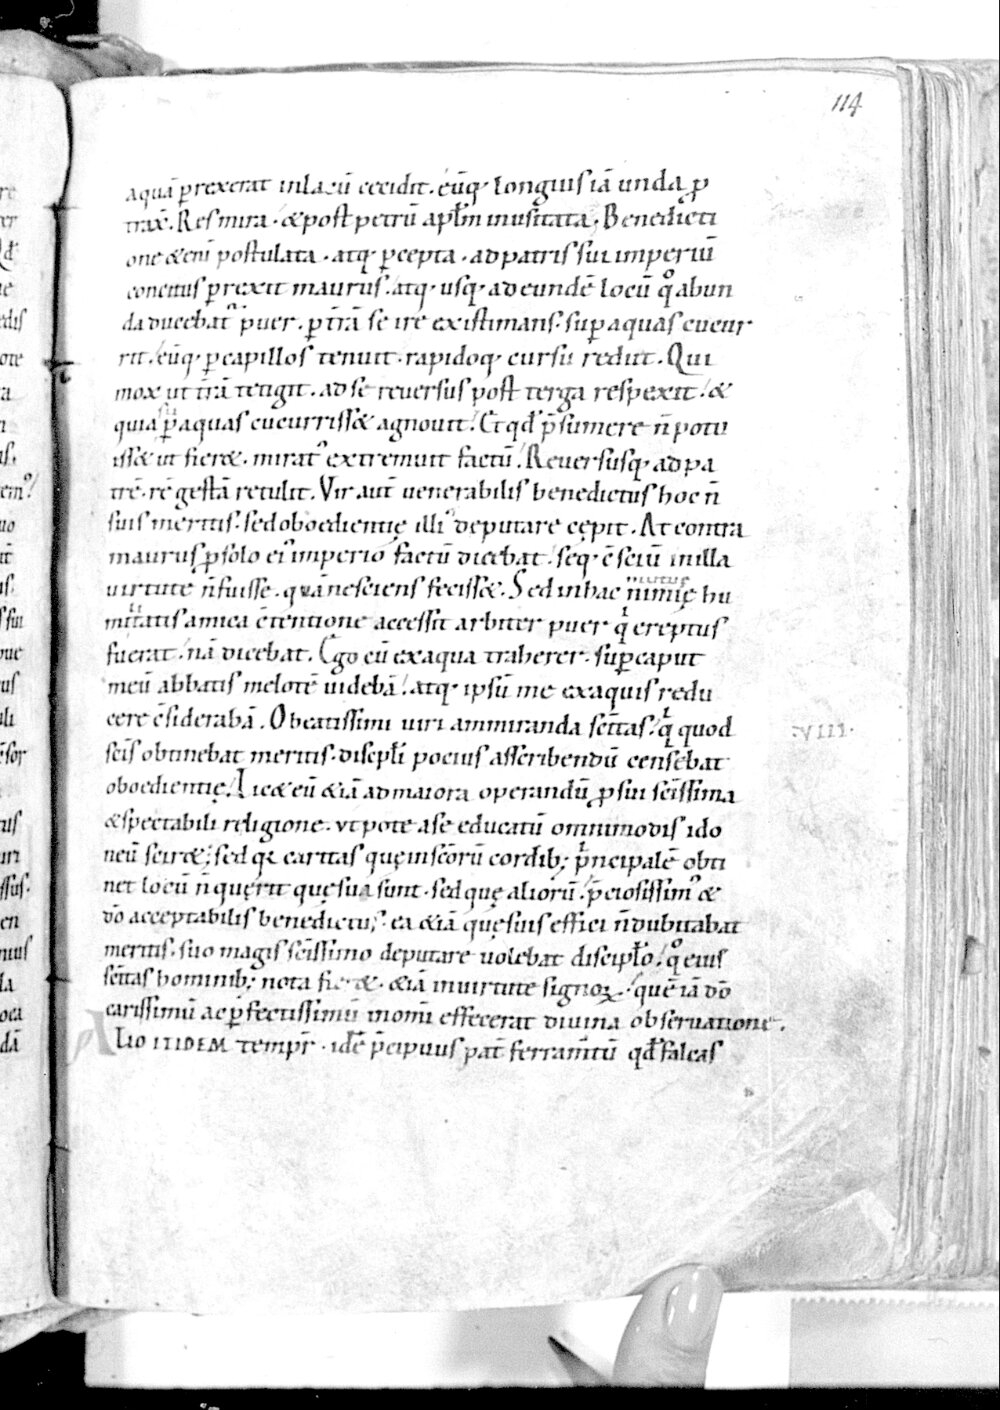 114
aquā ꝑrexerat in lacū cecidit. eūq; longius iā unda ꝓ
trax&. Res mira. & post petrū aplm̄ inusitata. Benedicti
one &enī postulata. atq; ꝑcepta. ad patris sui imperiū
concitus ꝑrexit maurus. atq; usq; ad eundē locū q° abun
da ducebat᷒ puer. ꝑ t̄rā se ire existimans. suꝑ aquas cucur
rit. eūq; ꝑ capillos tenuit. rapidoq; cursu rediit. Qui
mox ut t̄rā tetigit. ad se reuersus post terga respexit. &
quia suꝑ aquas cucurriss& agnouit. Et qd̄ p̄sumere n̄ potu
iss& ut fier&. mirat᷒ extremuit factū. Reuersusq; ad pa
trē. rē gestā retulit. Vir aut̄ uenerabilis benedictus hoc n̄
suis meritis. sed oboedientię illi᷒ deputare cępit. At contra
maurus ꝓ solo ei᷒ imperio factū dicebat. seq; ē sciū in illa
uirtute n̄ fuisse. quā nesciens feciss&. Sed in hac nimię hu
militatis amica c̄tentione accessit arbiter puer qͥ ereptus
fuerat. nā dicebat. Ego cū ex aqua traherer. suꝑ caput
meū abbatis melotē uidebā. atq; ipsū me ex aquis redu
cere c̄siderabā. O beatissimi uiri ammiranda sc̄itas. qͥ quod
.VIII.
sc̄is obtinebat meritis. discipli pocius asscribendū censebat
oboedientię. Lic& eū &iā ad maiora operandū ꝓ sui sc̄issima
& spectabili religione. utpote a se educatū omnimodis ido
neū scir&; sed qa caritas quę in sc̄orū cordib; pͥncipalē obti
net locū n̄ quęrit quę sua sunt. sed quę aliorū. p̄ciosissim᷒ &
dō acceptabilis benedictus. ea &iā quę suis effici n̄ dubitabat
meritis. suo magis sc̄issimo deputare uolebat disciplo. q° eius
sc̄itas hominib; nota fier&. &iā in uirtute signoꝝ. quē iā dō
carissimū ac ꝑfectissimū in omī effecerat diuina obseruatione.
ALIO ITIDEM tempr̄. idē p̄cipuus pat̄ ferram̄tū qd̄ falcas